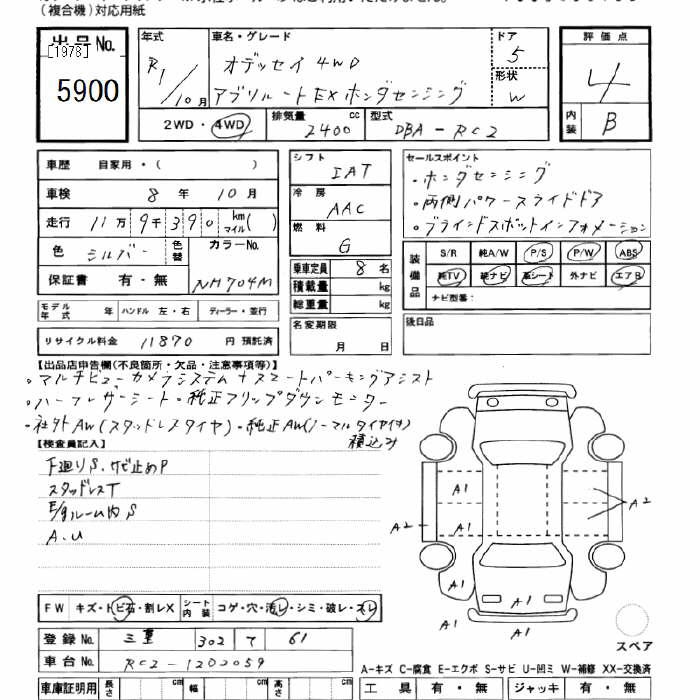 (複合機)対応用紙
出品No.
[1978]
5900
年式
R1/10月
車名・グレード
オデッセイ 4WD
アブソルートEXホンダセンシング
ドア
5
形状
W
評価点
4
内装
B
2WD・4WD
排気量
2400 cc
型式
DBA-RC2
車歴 自家用・( )
車検 8 年 10 月
走行 11万 9千 3 9 0 km マイル( )
色 シルバー 色替 カラーNo. NH704M
保証書 有・無
モデル年式 年 ハンドル 左・右 ディーラー・並行
リサイクル料金 11870 円 預託済
シフト
IAT
冷房
AAC
燃料
G
乗車定員 8 名
積載量 kg
総重量 kg
名変期限
月 日
セールスポイント
・ホンダセンシング
・両側パワースライドドア
・ブラインドスポットインフォメーション
装備品
S/R 純A/W P/S P/W ABS
純TV 純ナビ 革シート 外ナビ エアB
ナビ型番:
後日品
【出品店申告欄(不良箇所・欠品・注意事項等)】
・マルチビューカメラシステム+スマートパーキングアシスト
・ハーフレザーシート・純正フリップダウンモニター
・社外AW(スタッドレスタイヤ)・純正AW(ノーマルタイヤ付)
積込み
【検査員記入】
下廻りS.サビ止めP
スタッドレスT
E/gルーム内S
A.U
A1
A1
A2
A2
A1
A1
A1
A1
スペア
FW キズ・トビ石・割レX シート内装 コゲ・穴・汚レ・シミ・破レ・スレ
登録No. 三重 302 て 61
車台No. RC2-1202059
A-キズ C-腐食 E-エクボ S-サビ U-凹ミ W-補修 XX-交換済
車庫証明用 長さ cm 幅 cm 高さ cm
工具 有・無 ジャッキ 有・無